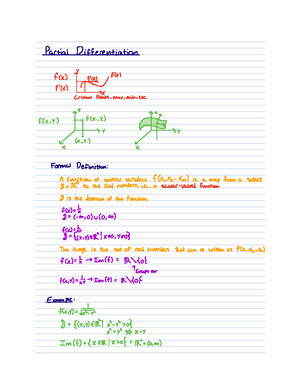 Partial Differentiation
f(x)
y
P(x)
P(x)
P'(x)
x
Critical Point, max, min, etc.
f(x,y)
z
f(x,y)
y
x
(x,y)
z
y
x
Formal Definition:
A function of several variables f(x₁,x₂…xₙ) is a map from a subset
D = ℝⁿ to the real numbers, i.e., a scalar-valued function
D is the domain of the function
f(x) = 1/x
D = (-∞,0) ∪ (0,∞)
D = {(x,y) ∈ ℝ² | x≠0, y≠0}
The range is the set of real numbers that can be written as f(x₁,x₂…xₙ)
f(x) = 1/x → Im(f) = ℝ \ {0}
Except for
f(x,y) = 1/xy → Im(f) = ℝ \ {0}
Example:
f(x,y) = 1/√(x²-y²)
D = {(x,y) ∈ ℝ² | x²-y² > 0}
Im(f) = {z ∈ ℝ | z > 0} = ℝ⁺ = (0,∞)